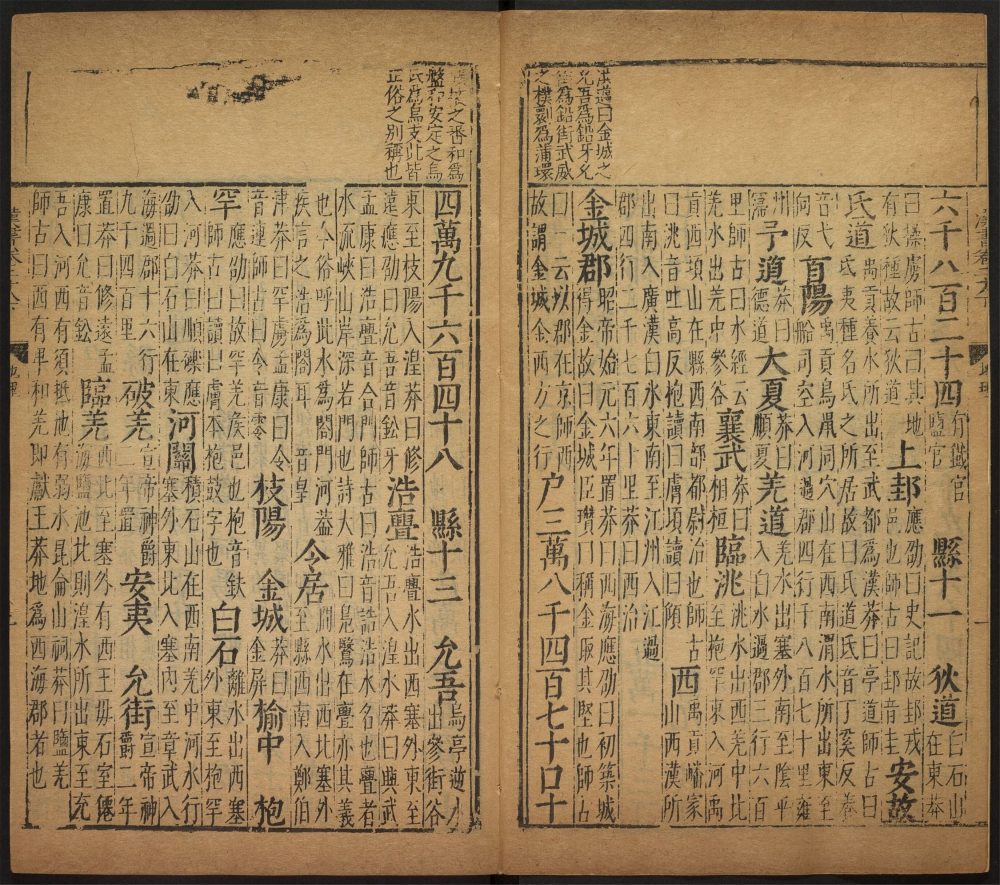 洪邁曰金城之
允吾爲鉛牙允
街爲鉛街武威
之樸劓爲蒲環
六千八百二十四有鐵官鹽官 縣十一 狄道白石山在東莽
曰操虜師古曰其地有狄種故云狄道 上邽應劭曰史記故邽戎邑也師古曰邽音圭 安故
氐道禹貢養水所出至武都爲漢莽曰亭道師古曰氐夷種名氐之所居故曰氐道氐音丁奚反養
音弋向反 首陽禹貢鳥鼠同穴山在西南渭水所出東至船司空入河過郡四行千八百七十里雍
州 予道莽曰德道 大夏莽曰順夏 羌道羌水出塞外南至陰平入白水過郡三行六百
里師古曰水經云羌水出羌中參谷 襄武莽曰相桓 臨洮洮水出西羌中北至枹罕東入河禹
貢西頃山在縣西南部都尉治也師古曰洮音吐高反枹讀曰膚頃讀曰傾 西禹貢嶓冢山西漢所
出南入廣漢白水東南至江州入江過郡四行二千七百六十里莽曰西治
金城郡昭帝始元六年置莽曰西海應劭曰初築城得金故曰金城臣瓚曰稱金取其堅也師古
曰一云以郡在京師之西故謂金城金西方之行 戶三萬八千四百七十口十
之番和爲
盤和安定之烏
氏爲烏支此皆
正俗之別稱也
四萬九千六百四十八 縣十三 允吾烏亭逆水出參街谷
東至枝陽入湟莽曰修遠應劭曰允吾音鈆牙 浩亹浩亹水出西塞外東至允吾入湟水莽曰興武
孟康曰浩亹音合門師古曰浩音誥浩水名也亹者水流峽山岸深若門也詩大雅曰鳧鷖在亹亦其義
也今俗呼此水爲閤門河蓋疾言之浩爲閤耳湟音皇 令居澗水出西北塞外至縣西南入鄭伯
津莽曰罕虜孟康曰令音連師古曰令音零 枝陽 金城莽曰金屏 榆中 枹
罕應劭曰故罕羌侯邑也枹音鈇師古曰讀曰膚本枹鼓字也 白石離水出西塞外東至枹罕
入河莽曰順礫應劭曰白石山在東 河關積石山在西南羌中河水行塞外東北入塞內至章武入
海過郡十六行九千四百里 破羌宣帝神爵二年置 安夷 允街宣帝神爵二年
置莽曰修遠孟康曰允音鈆 臨羌西北至塞外有西王母石室僊海鹽池北則湟水所出東至允
吾入河西有須抵池有弱水昆侖山祠莽曰鹽羌師古曰西有卑和羌即獻王莽地爲西海郡者也